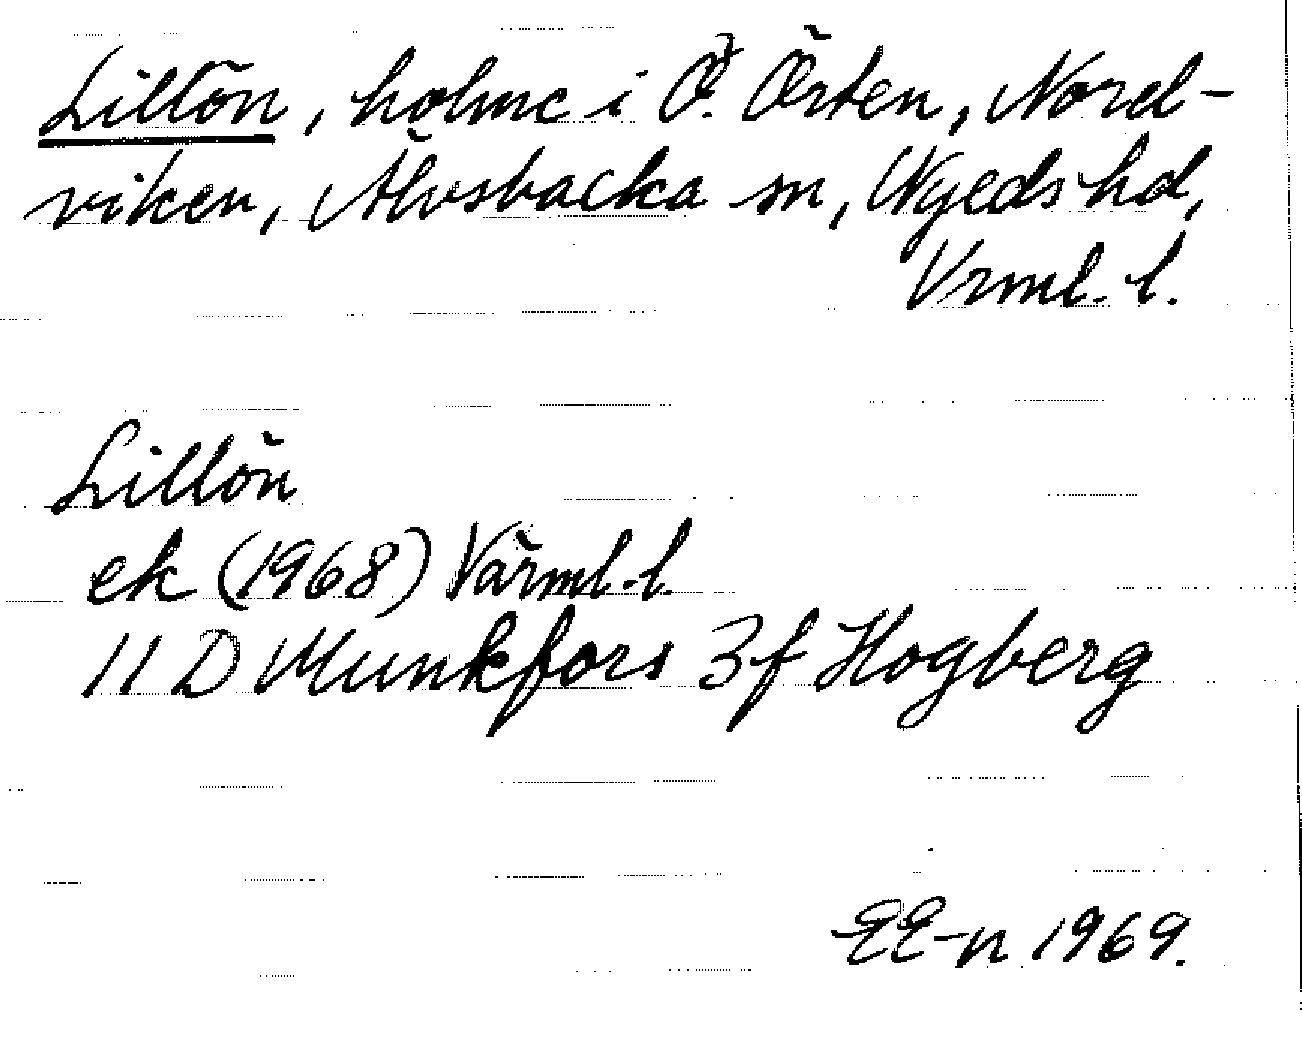 Lillön, holme i Ö. Örten, Nord-
viken, Älvsbacka sn, Nyeds hd,
Vrml. l.
Lillön
ek (1968) Värml. l.
11 D Munkfors 3f Högberg
EE-n 1969.